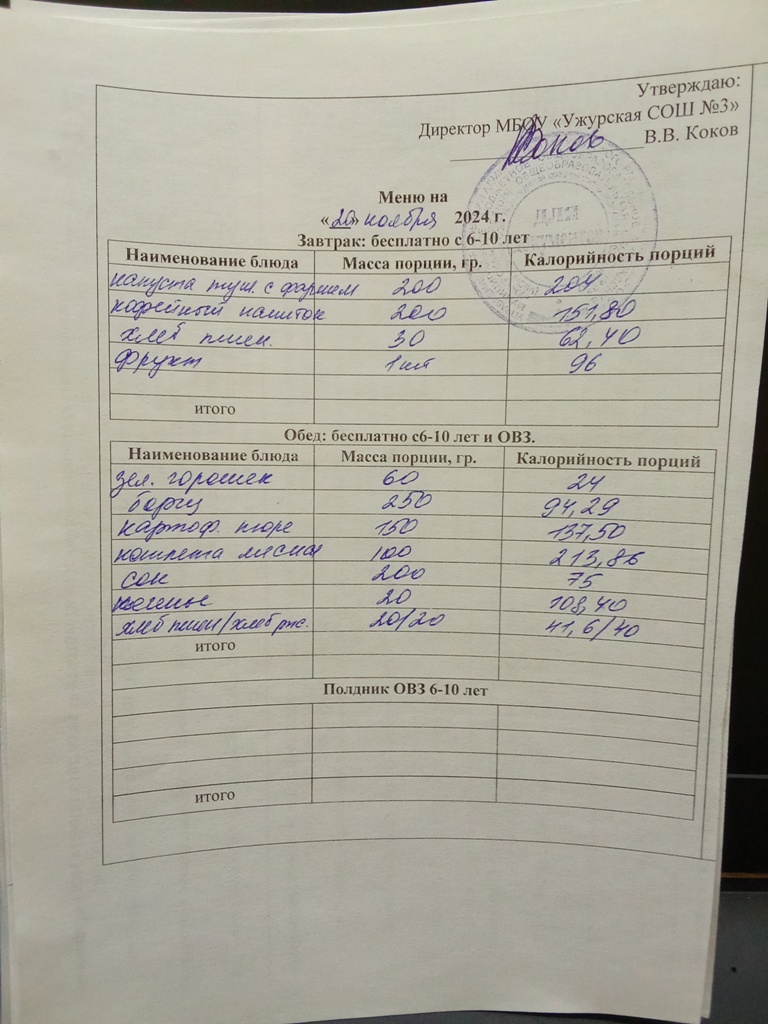 Утверждаю:
Директор МБОУ «Ужурская СОШ №3»
В.В. Коков
Меню на
«20» ноября 2024 г.
Завтрак: бесплатно с 6-10 лет
Наименование блюда Масса порции, гр. Калорийность порций
капуста туш. с фаршем 200 204
кофейный напиток 200 151,80
хлеб пшен. 30 62,40
фрукт 1 шт 96
итого
Обед: бесплатно с6-10 лет и ОВЗ.
Наименование блюда Масса порции, гр. Калорийность порций
зел. горошек 60 24
борщ 250 94,29
картоф. пюре 150 137,50
котлета мясная 100 213,86
сок 200 75
печенье 20 108,40
хлеб пшен/хлеб рж. 20/20 41,6/40
итого
Полдник ОВЗ 6-10 лет
итого